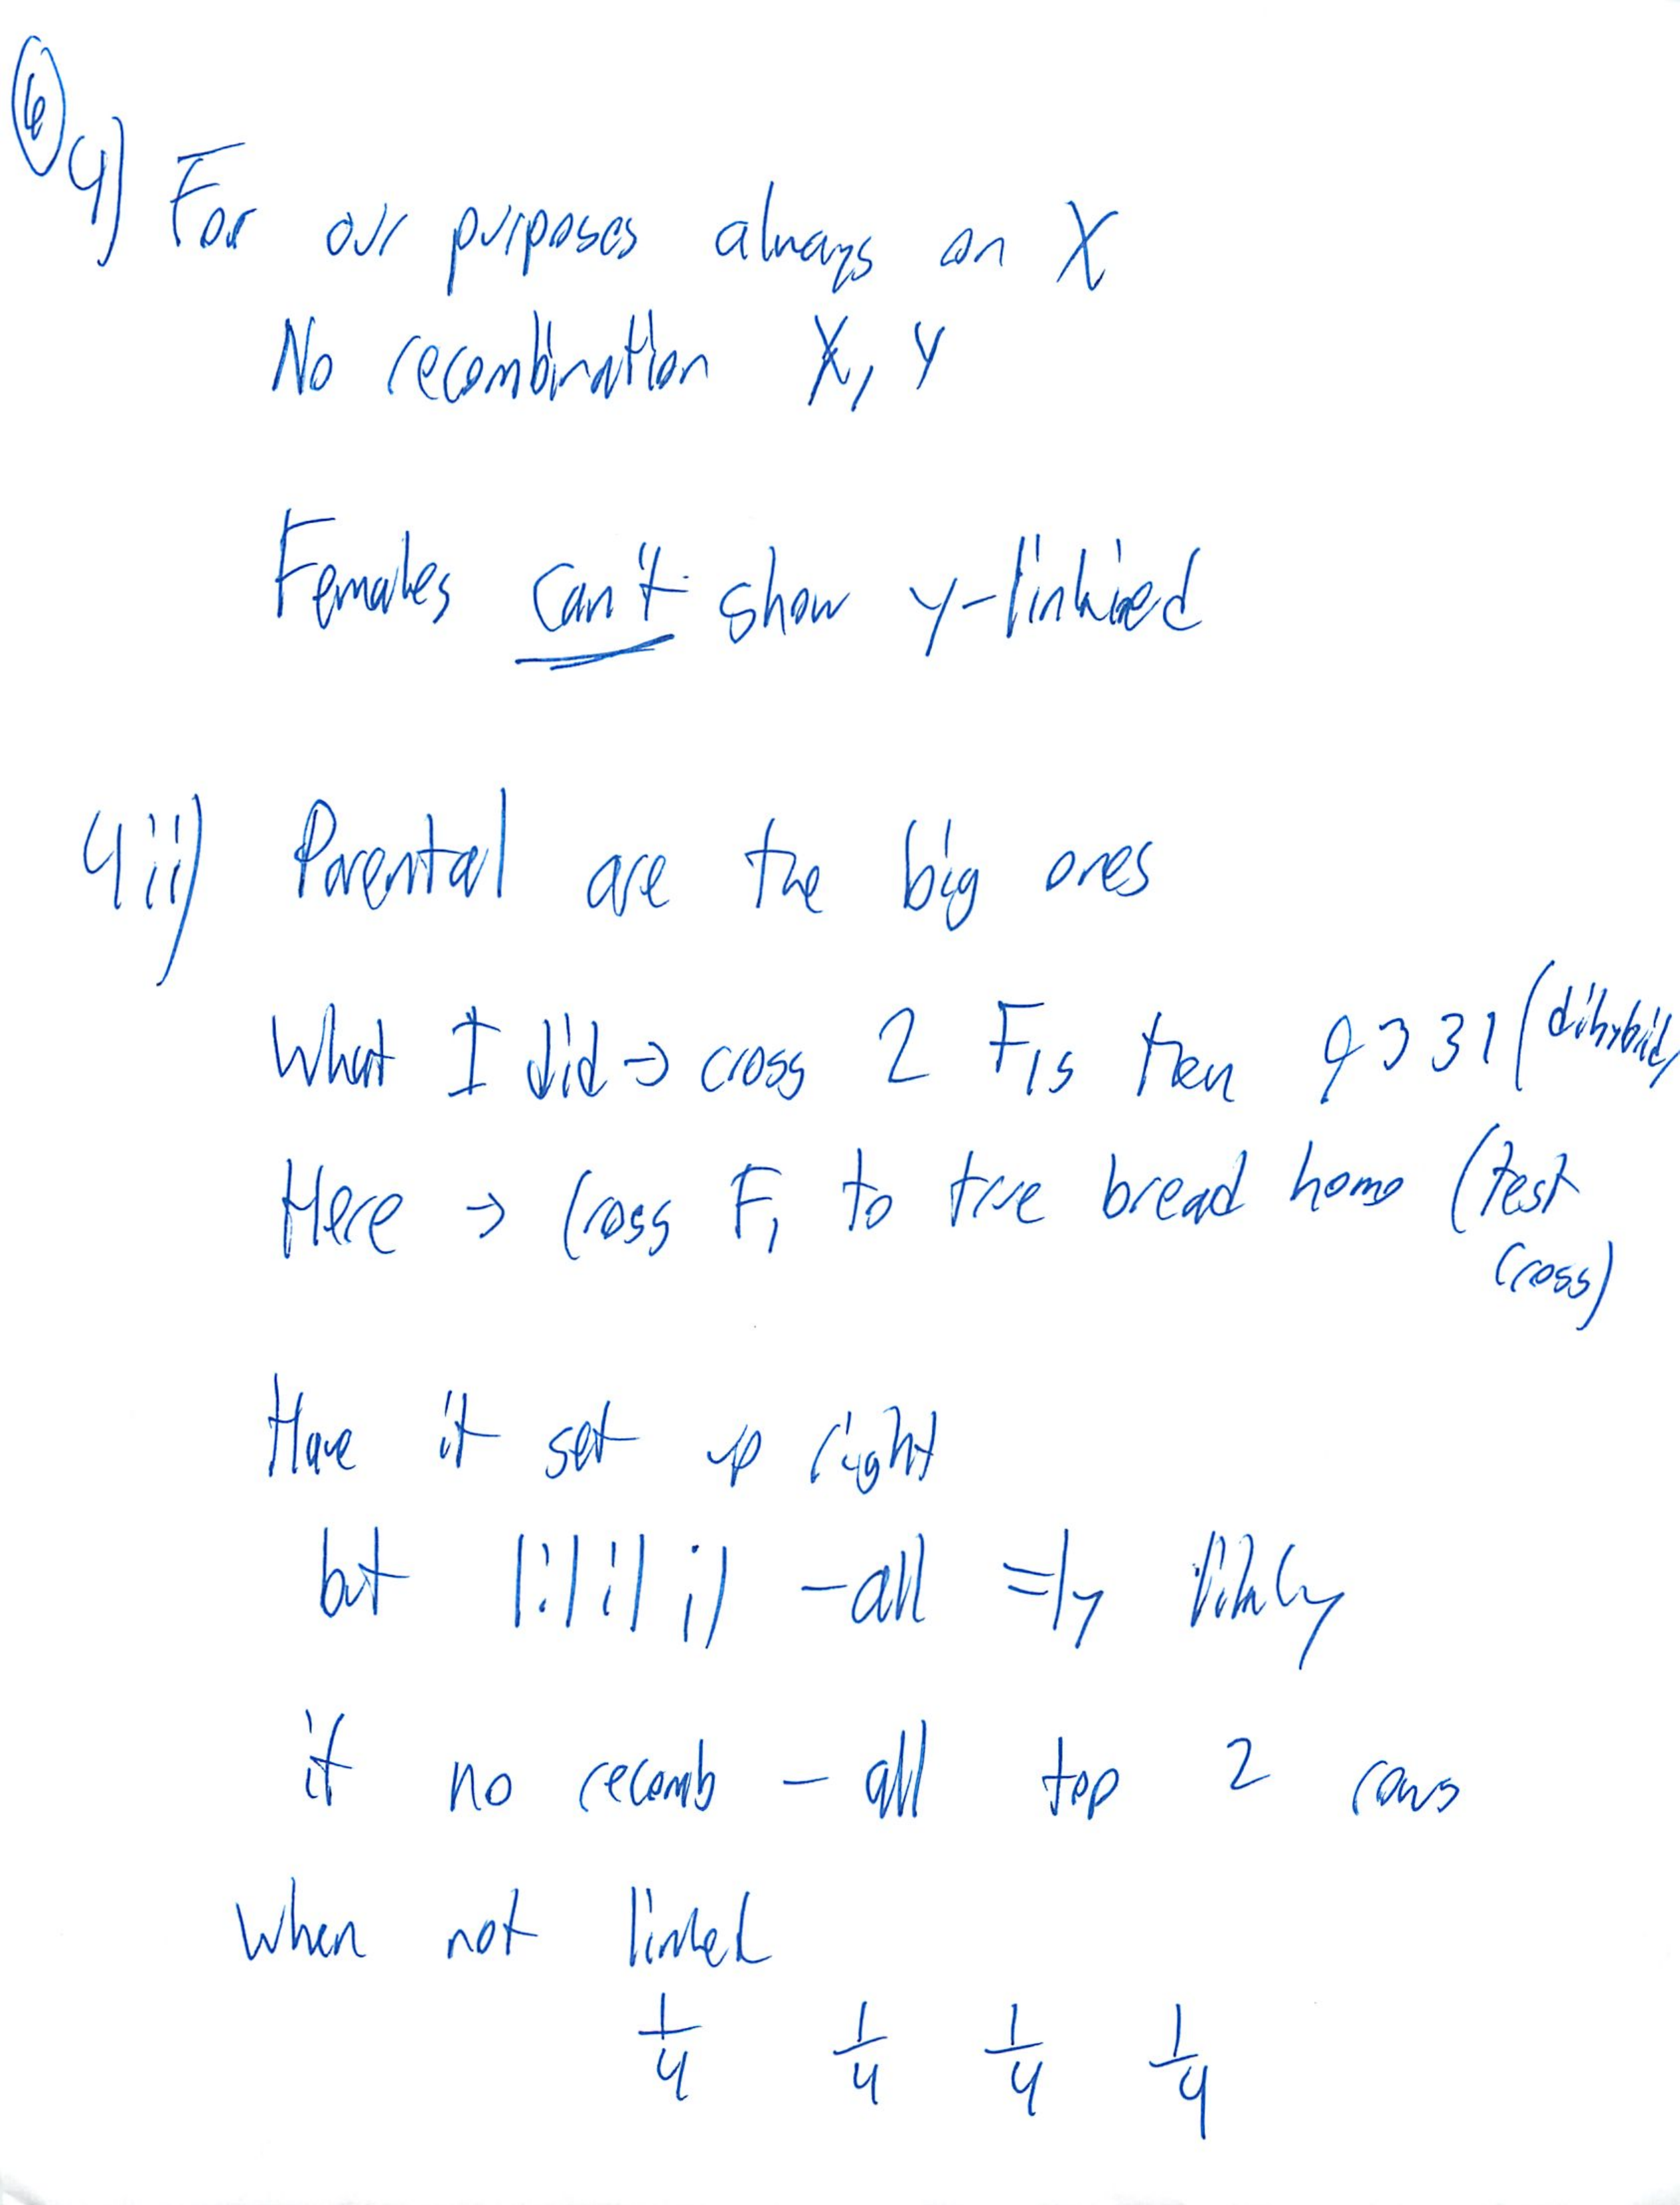 6
4) For our purposes always on X
No recombination X, Y
Females can't show y-linked
4ii) Parental are the big ones
What I did → cross 2 F1s then 9331 (dihybrid)
Here → cross F1 to true bread homo (test
cross)
Have it set up right
but 1:1:1:1 - all =ly likely
if no recomb - all top 2 rows
When not linked
1/4 1/4 1/4 1/4